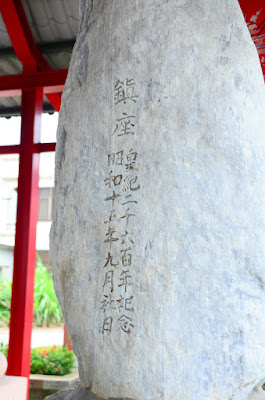 鎮座
皇紀二千六百年記念
昭和十五年九月秋日